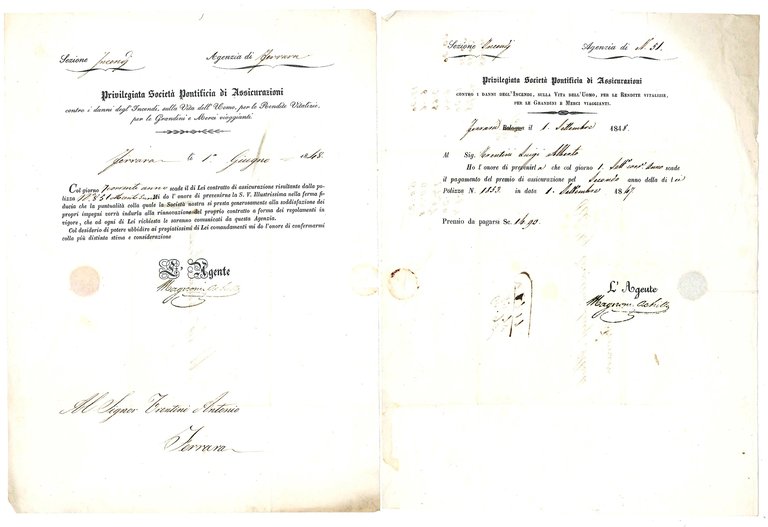 Sezione Incendj Agenzia di Ferrara
Privilegiata Società Pontificia di Assicurazioni
contro i danni degl' Incendi, sulla Vita dell' Uomo, per le Rendite Vitalizie,
per le Grandini e Merci viaggianti
Ferrara li 1° Giugno 1848.
Col giorno scade il di Lei contratto di assicurazione risultante dalla po-
lizza N. di do l'onore di prevenirne la S. V. Illustrissima nella ferma fi-
ducia che la puntualità colla quale la Società nostra si presta generosamente alla soddisfazione dei
propri impegni vorrà indurla alla rinnovazione del proprio contratto a forma dei regolamenti in
vigore, che ad ogni di Lei richiesta le saranno comunicati da questa Agenzia.
Col desiderio di potere ubbidire ai pregiatissimi di Lei comandamenti mi do l'onore di confermarmi
colla più distinta stima e considerazione
L' Agente
Magnoni
Al Signor Trentini Antonio
Ferrara
Sezione Incendj Agenzia di N. 31.
Privilegiata Società Pontificia di Assicurazioni
CONTRO I DANNI DELL' INCENDIO, SULLA VITA DELL' UOMO, PER LE RENDITE VITALIZIE,
PER LE GRANDINI E MERCI VIAGGIANTI.
Ferrara Bologna il 1. Settembre 1848.
Al Sig. Trentini Luigi Alberto
Ho l' onore di prevenirla che col giorno 1. Sett. corr. Anno scade
il pagamento del premio di assicurazione pel Secondo anno della di Lei
Polizza N. 1853. in data 1. Settembre 1847
Premio da pagarsi Sc. 16. 90.
L' Agente
Magnoni